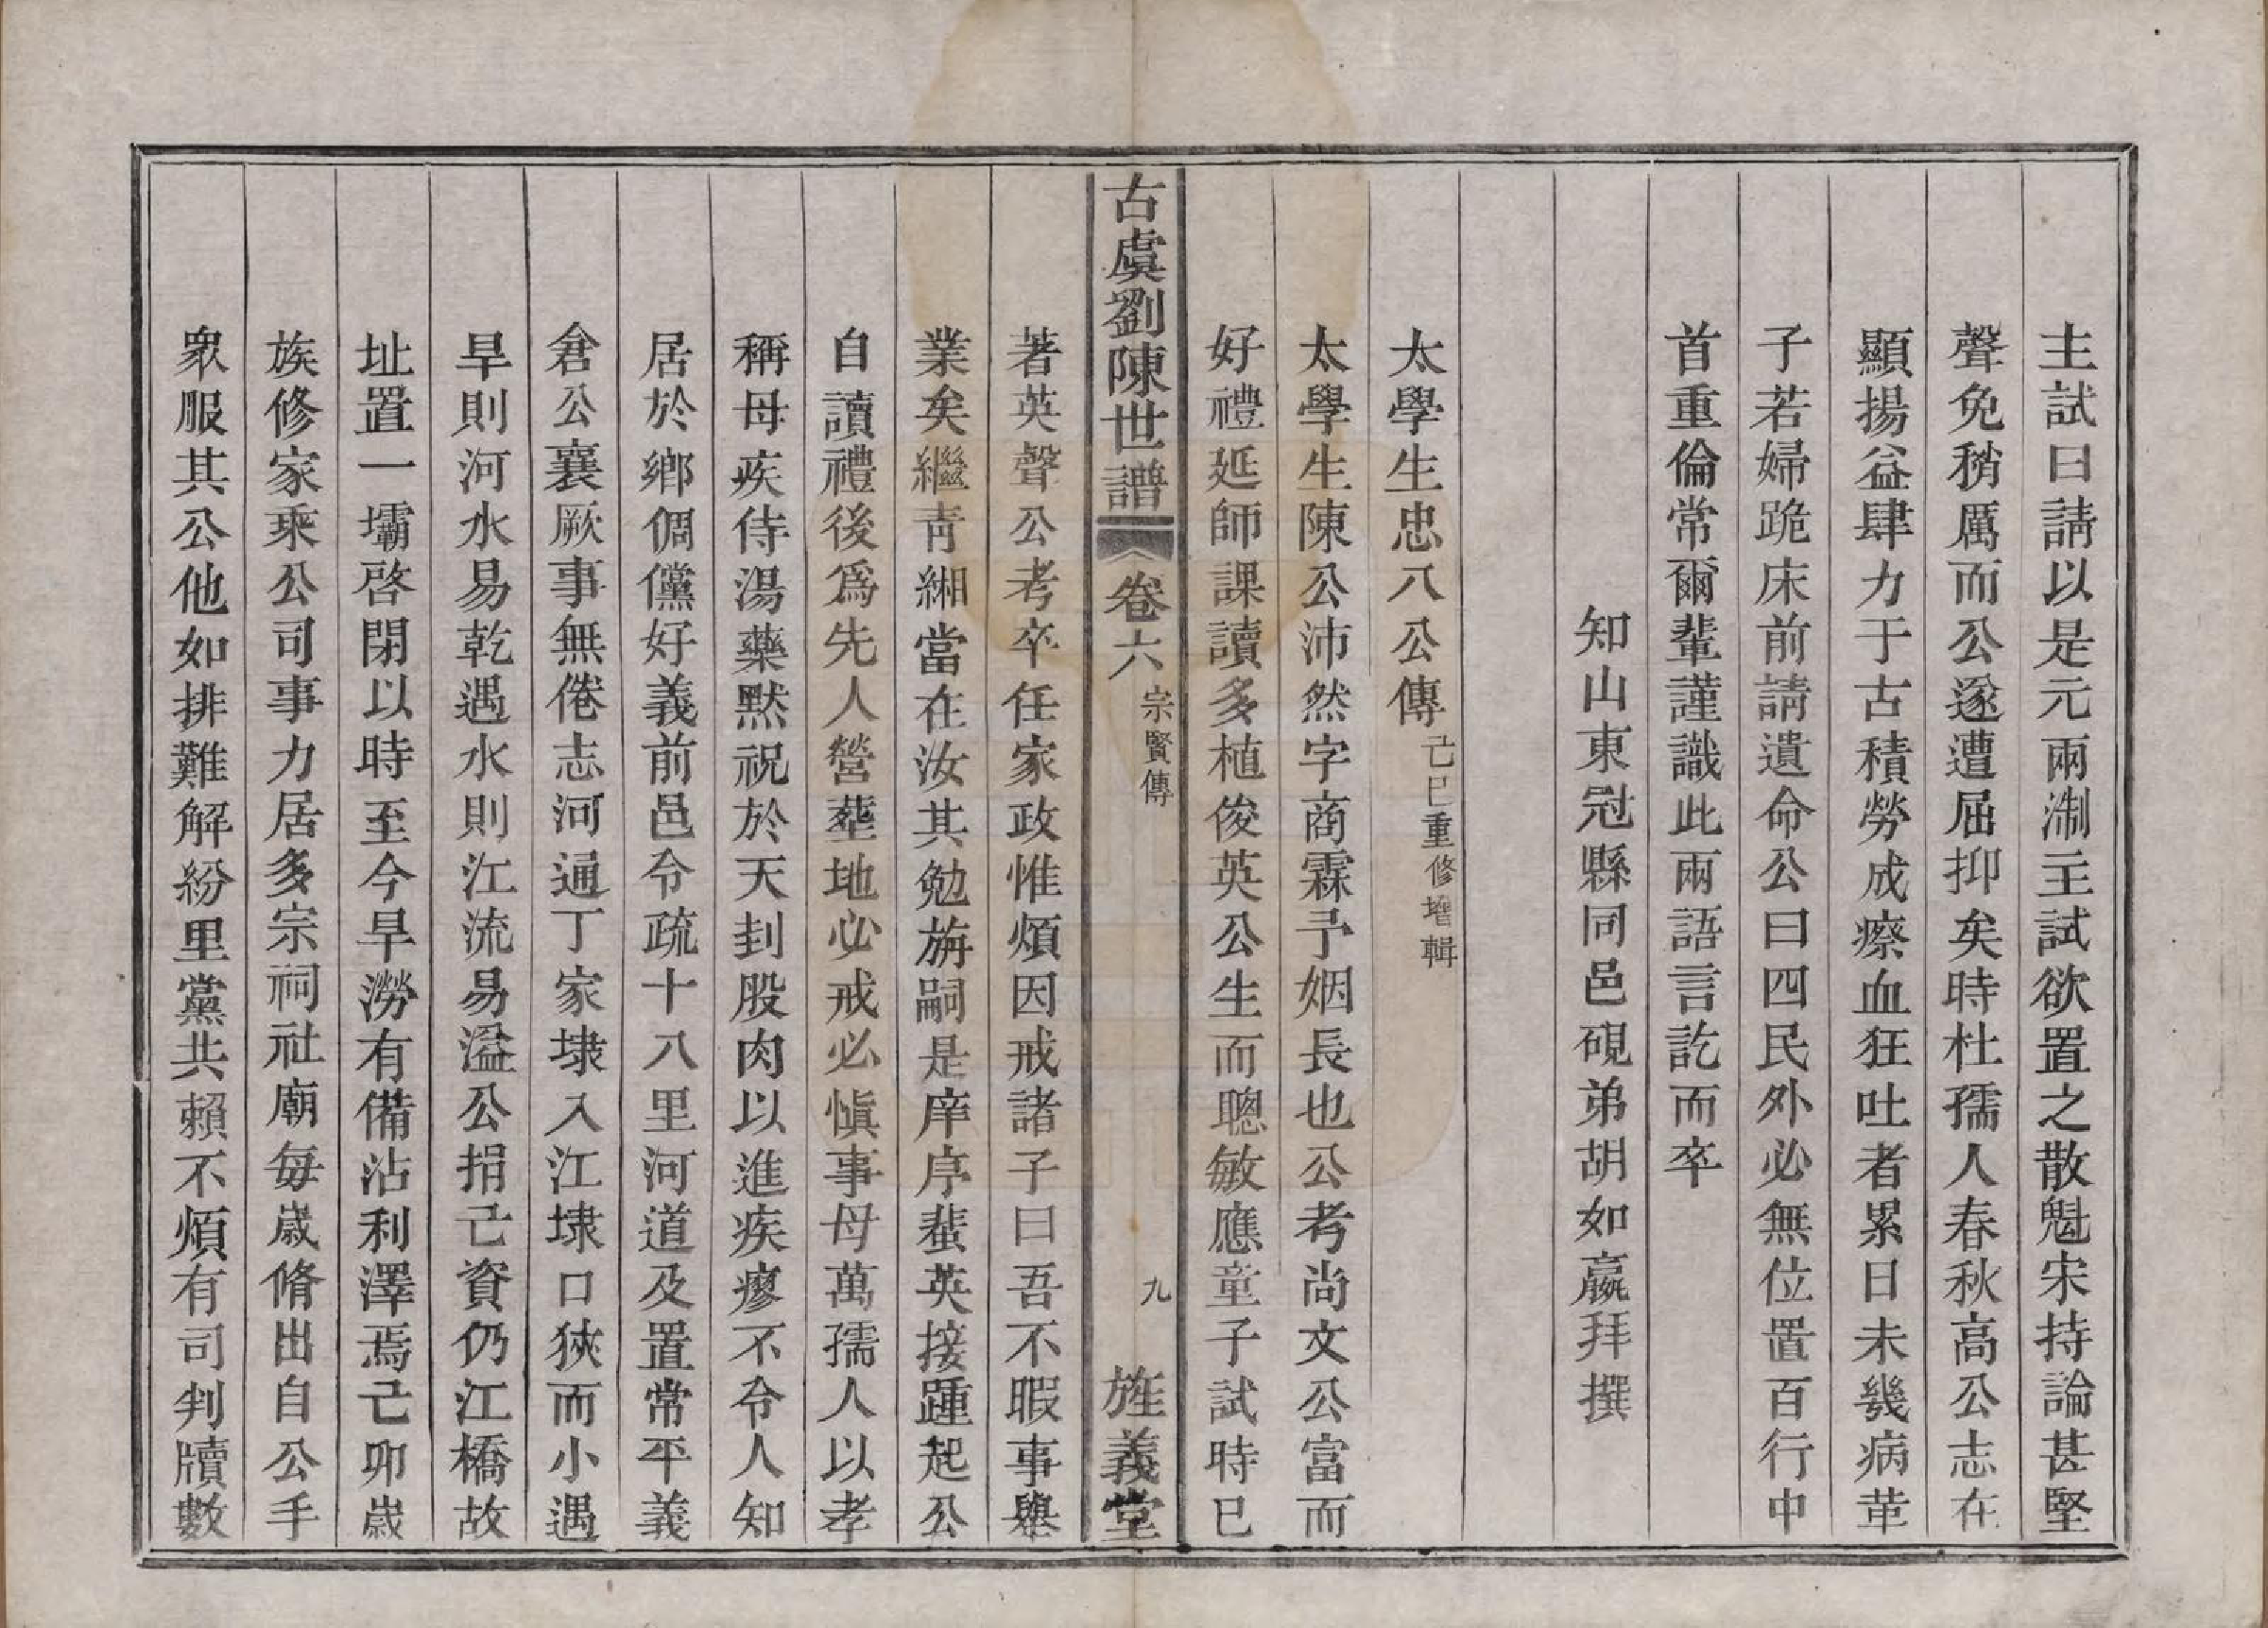 主試曰請以是元兩淛主試欲置之散魁宋持論甚堅
聲免稍厲而公遂遭屈抑矣時杜孺人春秋高公志在
顯揚益肆力于古積勞成瘵血狂吐者累日未幾病革
子若婦跪床前請遺命公曰四民外必無位置百行中
首重倫常爾輩謹識此兩語言訖而卒
知山東冠縣同邑硯弟胡如嬴拜撰
太學生忠八公傳己巳重修增輯
太學生陳公沛然字商霖予姻長也公考尚文公富而
好禮延師課讀多植俊英公生而聰敏應童子試時已
古虞劉陳世譜 卷六 宗賢傳 九 旌義堂
著英聲公考卒任家政惟煩因戒諸子曰吾不暇事舉
業矣繼青緗當在汝其勉旃嗣是庠序蜚英接踵起公
自讀禮後為先人營塟地必戒必慎事母萬孺人以孝
稱母疾侍湯藥默祝於天刲股肉以進疾瘳不令人知
居於鄉倜儻好義前邑令疏十八里河道及置常平義
倉公襄厥事無倦志河通丁家埭入江埭口狹而小遇
旱則河水易乾遇水則江流易溢公捐己資仍江橋故
址置一壩啓閉以時至今旱澇有備沾利澤焉己卯歲
族修家乘公司事力居多宗祠社廟每歲脩出自公手
衆服其公他如排難解紛里黨共賴不煩有司判牘數